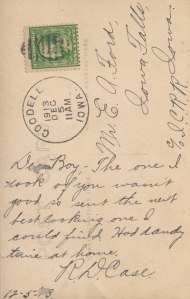 GOODELL
1913
DEC
5
11AM
IOWA.
Mr. E. A. Ford,
Iowa Falls,
Iowa.
Dear Boy - The one I
took of you wasn't
good so sent the next
best looking one I
could find. Had dandy
time at home.
R D Case.
12-5-13